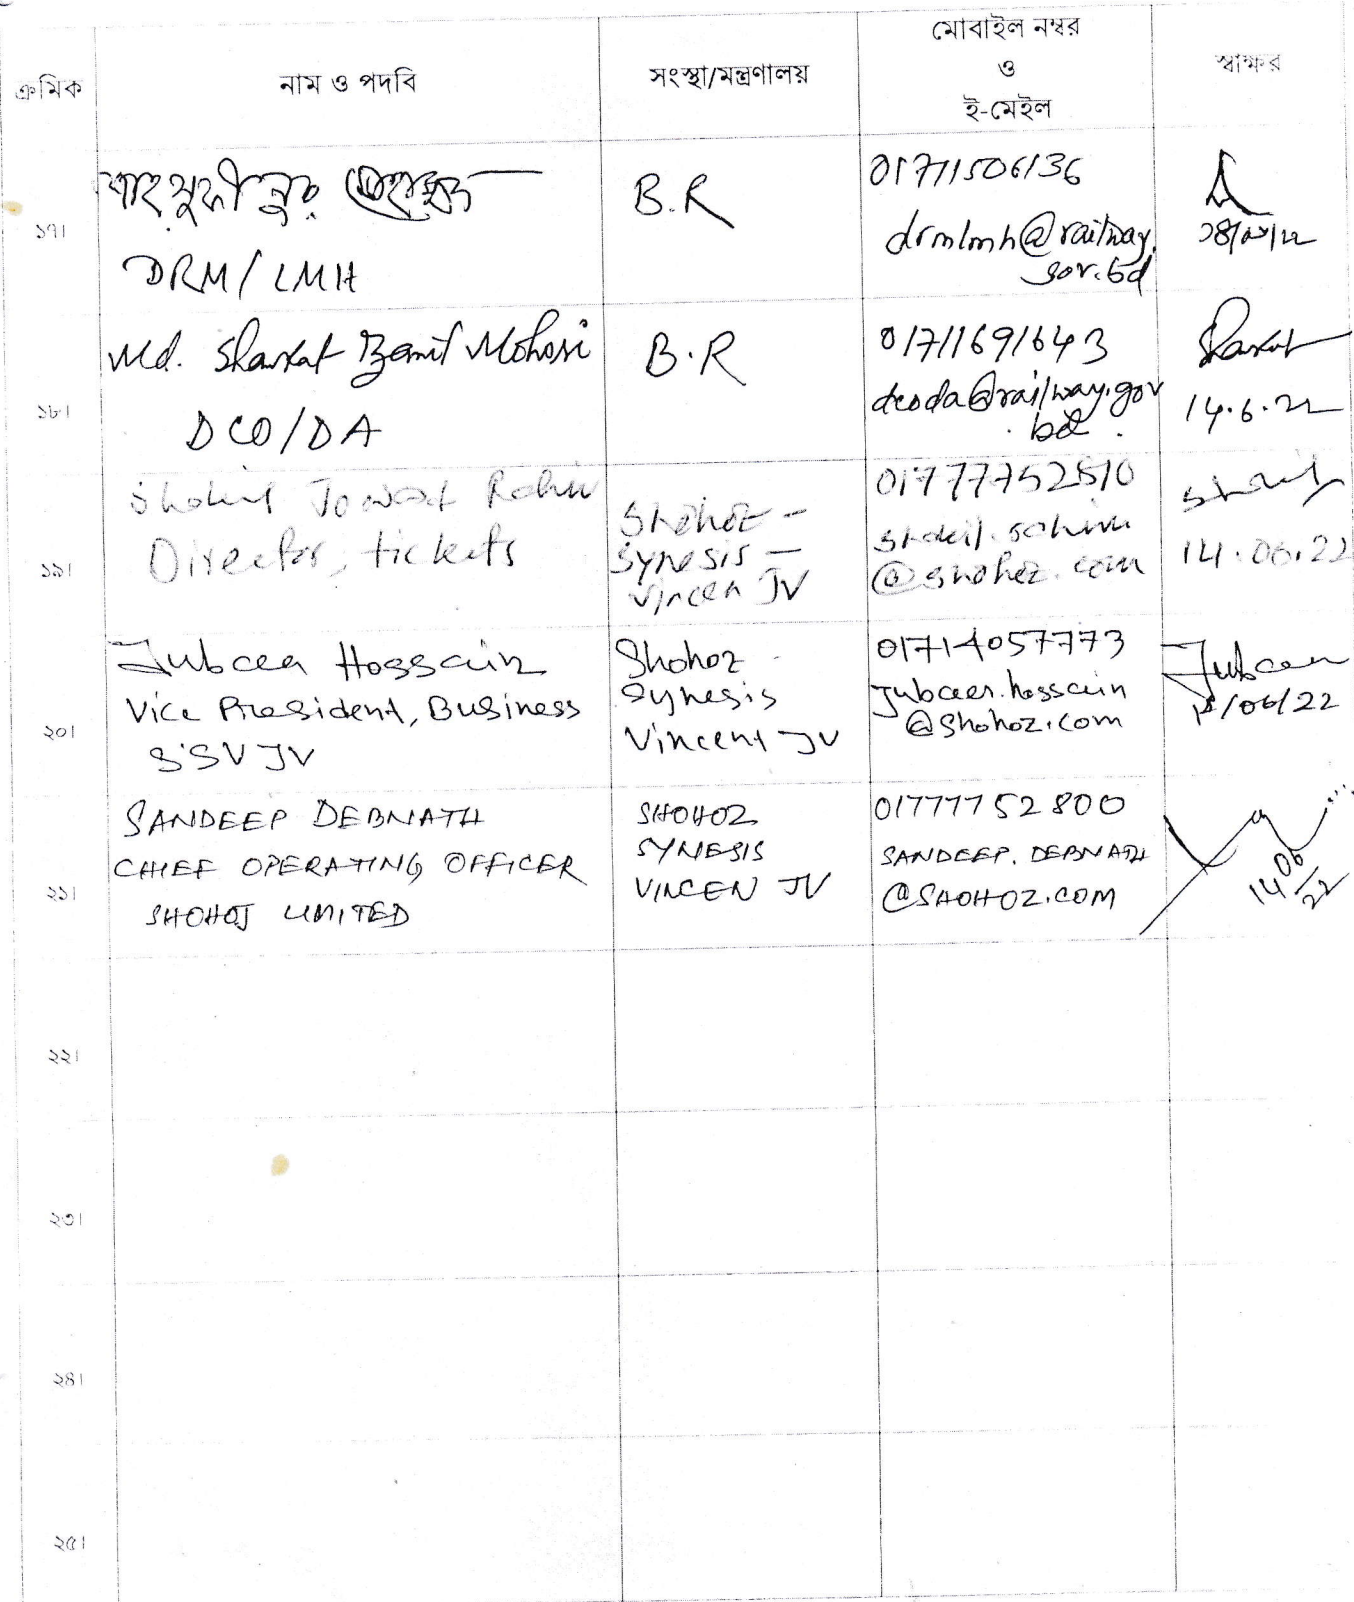 ক্রমিক
নাম ও পদবি
সংস্থা/মন্ত্রণালয়
মোবাইল নম্বর
ও
ই-মেইল
স্বাক্ষর
১৭।
শাহ সুফী নুর
DRM/LMH
B.R
01711506136
drmlmh@railway.
gov.bd
১৪/০৬/২২
১৮।
Md. Shawkat Jamil Mohosi
DCO/DA
B.R
01711691643
dcoda@railway.gov
bd.
14.6.22
১৯।
Director, tickets
Shohoz -
Synesis -
Vincen JV
01777752510
@shohoz.com
14.06.22
২০।
Jubaer Hossain
Vice President, Business
SSVJV
Shohoz
Synesis
Vincent JV
01714057773
Jubaer.hossain
@Shohoz.com
Jubaer
14/06/22
২১।
SANDEEP DEBNATH
CHIEF OPERATING OFFICER
SHOHOJ LIMITED
SHOHOZ
SYNESIS
VINCEN JV
01777752800
SANDEEP.DEBNATH
@SHOHOZ.COM
14 06
22
২২।
২৩।
২৪।
২৫।